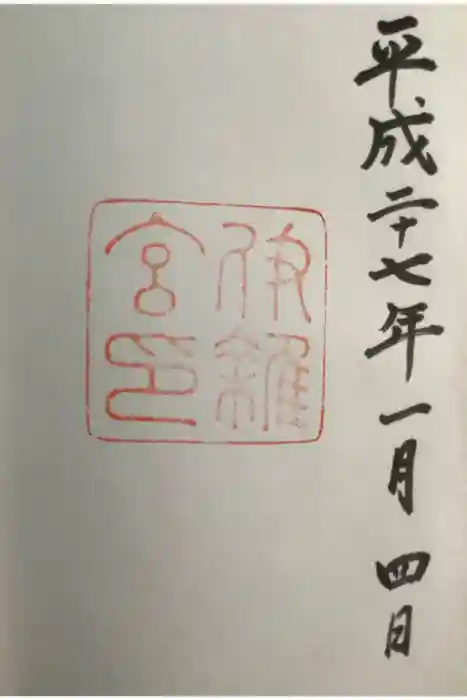 平成二十七年一月四日
伊雜
宮印